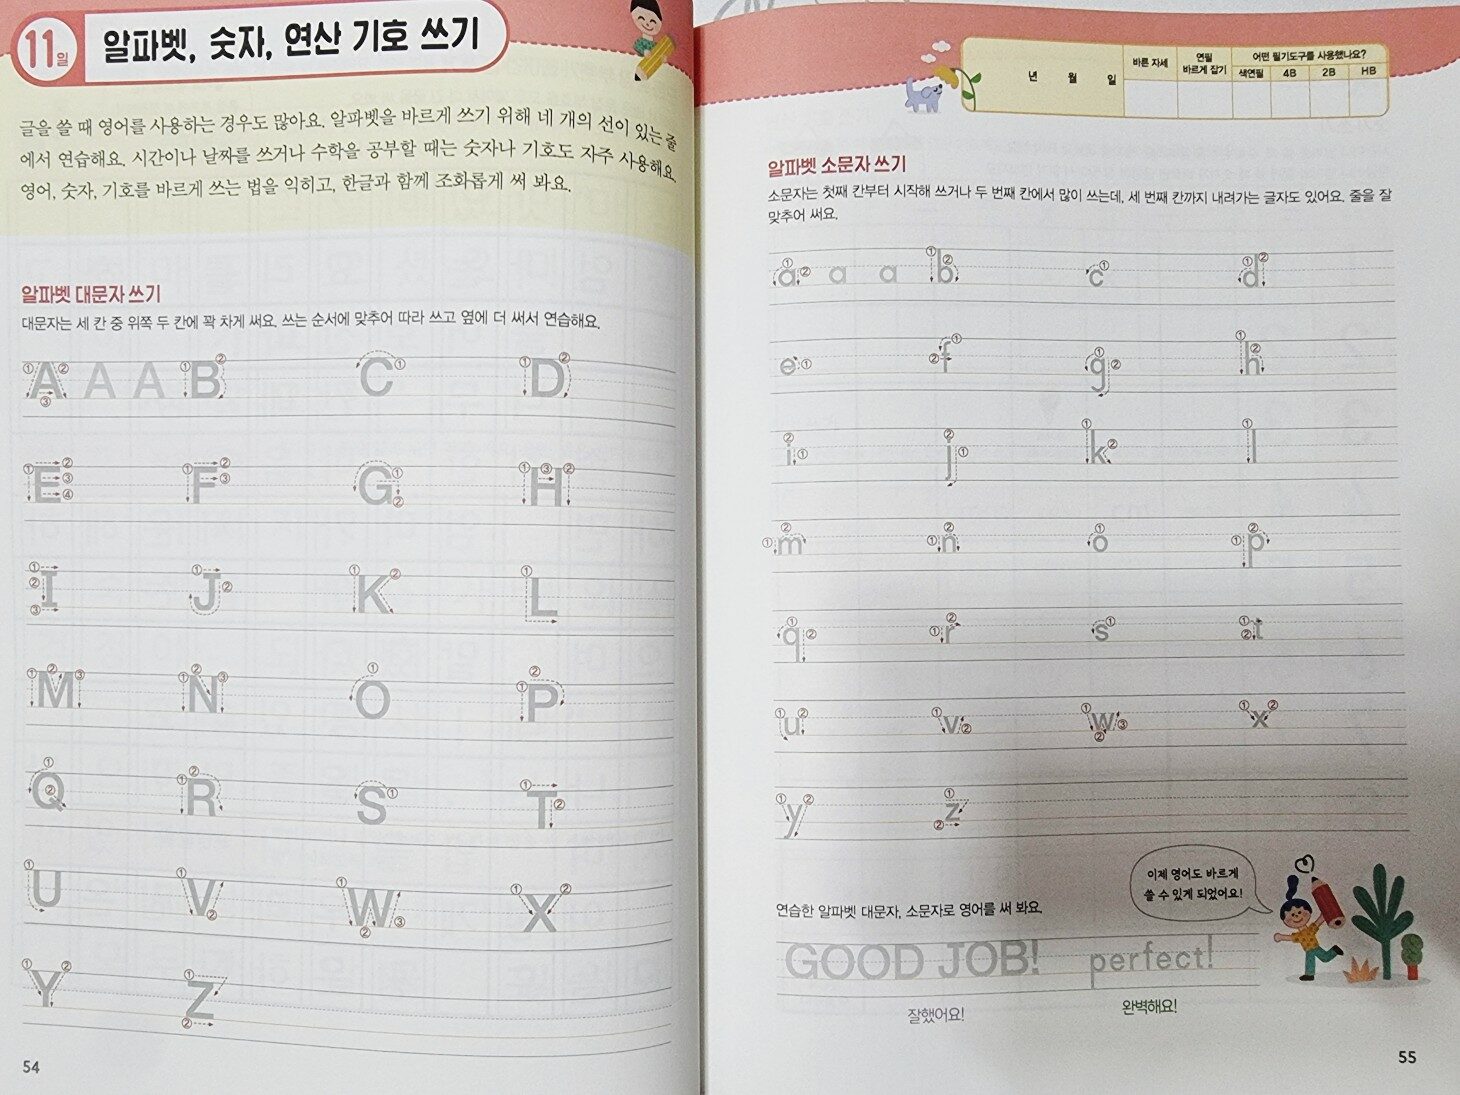 11일 알파벳, 숫자, 연산 기호 쓰기
글을 쓸 때 영어를 사용하는 경우도 많아요. 알파벳을 바르게 쓰기 위해 네 개의 선이 있는 줄
에서 연습해요. 시간이나 날짜를 쓰거나 수학을 공부할 때는 숫자나 기호도 자주 사용해요.
영어, 숫자, 기호를 바르게 쓰는 법을 익히고, 한글과 함께 조화롭게 써 봐요.
알파벳 대문자 쓰기
대문자는 세 칸 중 위쪽 두 칸에 꽉 차게 써요. 쓰는 순서에 맞추어 따라 쓰고 옆에 더 써서 연습해요.
① ② ③ A A A ① ② B ① C ① ② D
① ② ③ ④ E ① ② ③ F ① ② G ① ③ ② H
① ② ③ I ① ② J ① ② K ① L
① ② ③ M ① ② ③ N ① O ① ② P
① ② Q ① ② R ① S ① ② T
① U ① ② V ① ② ③ W ① ② X
① ② Y ① ② Z
54
년 월 일
바른 자세
연필
바르게 잡기
어떤 필기도구를 사용했나요?
색연필 4B 2B HB
알파벳 소문자 쓰기
소문자는 첫째 칸부터 시작해 쓰거나 두 번째 칸에서 많이 쓰는데, 세 번째 칸까지 내려가는 글자도 있어요. 줄을 잘
맞추어 써요.
① ② a a a ① ② b ① c ① ② d
① e ① ② f ① ② g ① ② h
② ① i ② ① j ① ② k ① l
① ② m ① ② n ① o ① ② p
① ② q ① ② r ① s ① ② t
① ② u ① ② v ① ② ③ w ① ② x
① ② y ① ② z
이제 영어도 바르게
쓸 수 있게 되었어요!
연습한 알파벳 대문자, 소문자로 영어를 써 봐요.
GOOD JOB! perfect!
잘했어요! 완벽해요!
55